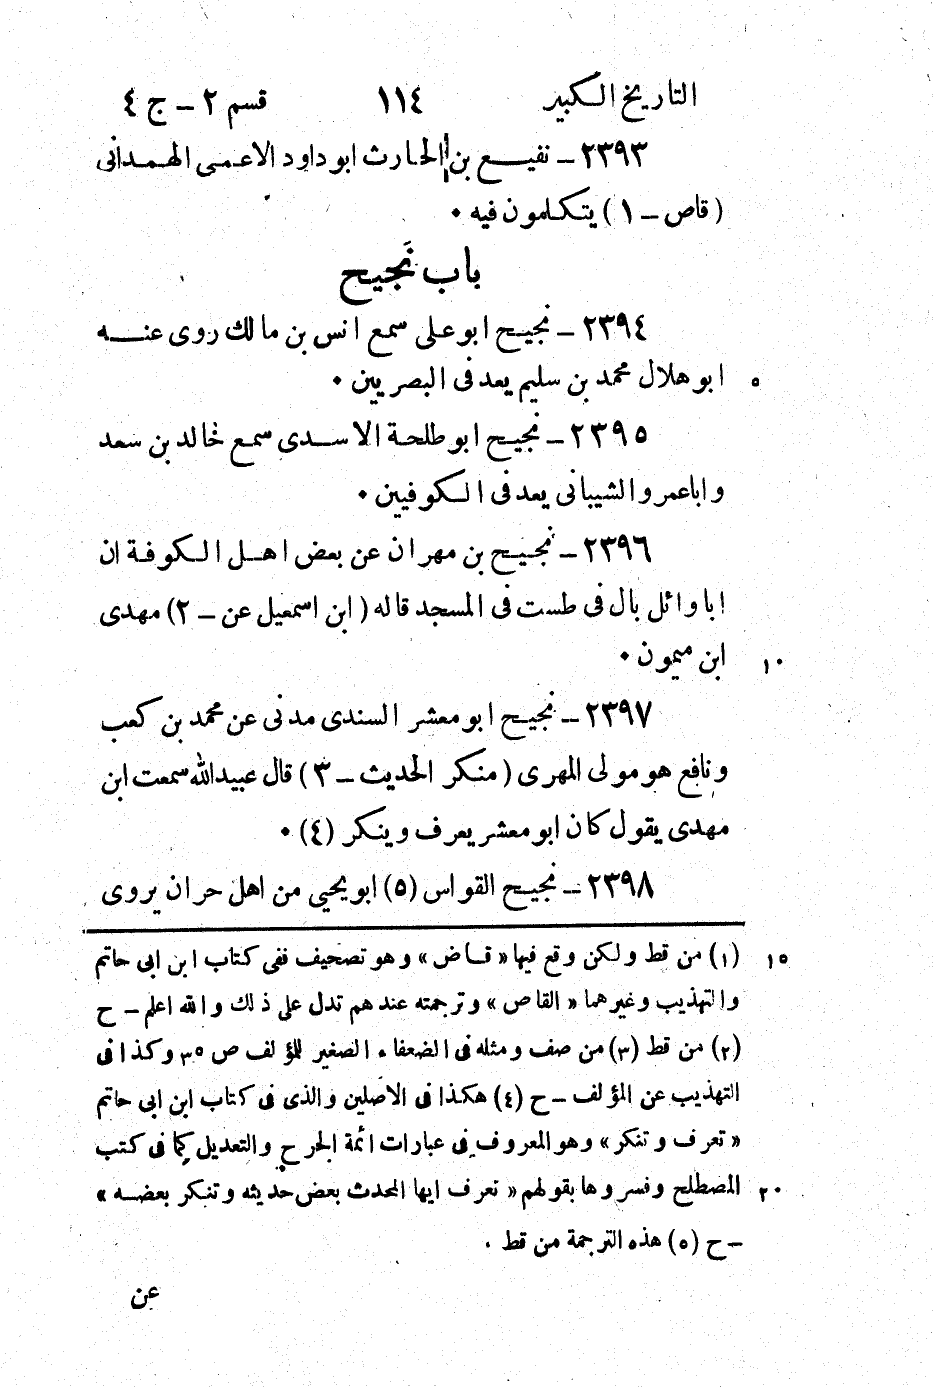 التاريخ الكبير ١١٤ قسم ٢ - ج ٤
٢٣٩٣ - نفيع بن الحارث ابو داود الاعمى الهمدانى
(قاص - ١) يتكلمون فيه •
باب نَجيح
٢٣٩٤ - نجيح ابو على سمع انس بن مالك روى عنه
ابو هلال محمد بن سليم يعد فى البصريين • ٥
٢٣٩٥ - نجيح ابو طلحة الاسدى سمع خالد بن سعد
وابا عمرو الشيبانى يعد فى الكوفيين •
٢٣٩٦ - نجيح بن مهران عن بعض اهل الكوفة ان
ابا وائل بال فى طست فى المسجد قاله (ابن اسمعيل عن - ٢) مهدى
ابن ميمون • ١٠
٢٣٩٧ - نجيح ابو معشر السندى مدنى عن محمد بن كعب
ونافع هو مولى المهرى (منكر الحديث - ٣) قال عبيدالله سمعت ابن
مهدى يقول كان ابو معشر يعرف وينكر (٤) •
٢٣٩٨ - نجيح القواس (٥) ابو يحيى من اهل حران يروى
(١) من قط ولكن وقع فيها « قاض » وهو تصحيف ففى كتاب ابن ابى حاتم ١٥
والتهذيب وغيرهما « القاص » وترجمته عندهم تدل على ذلك والله اعلم - ح
(٢) من قط (٣) من صف ومثله فى الضعفاء الصغير للؤلف ص ٣٥ وكذا فى
التهذيب عن المؤلف - ح (٤) هكذا فى الاصلين والذى فى كتاب ابن ابى حاتم
« تعرف وتنكر » وهو المعروف فى عبارات ائمة الجرح والتعديل كما فى كتب
المصطلح وفسروها بقولهم « تعرف ايها المحدث بعض حديثه وتنكر بعضه » ٢٠
- ح (٥) هذه الترجمة من قط .
عن